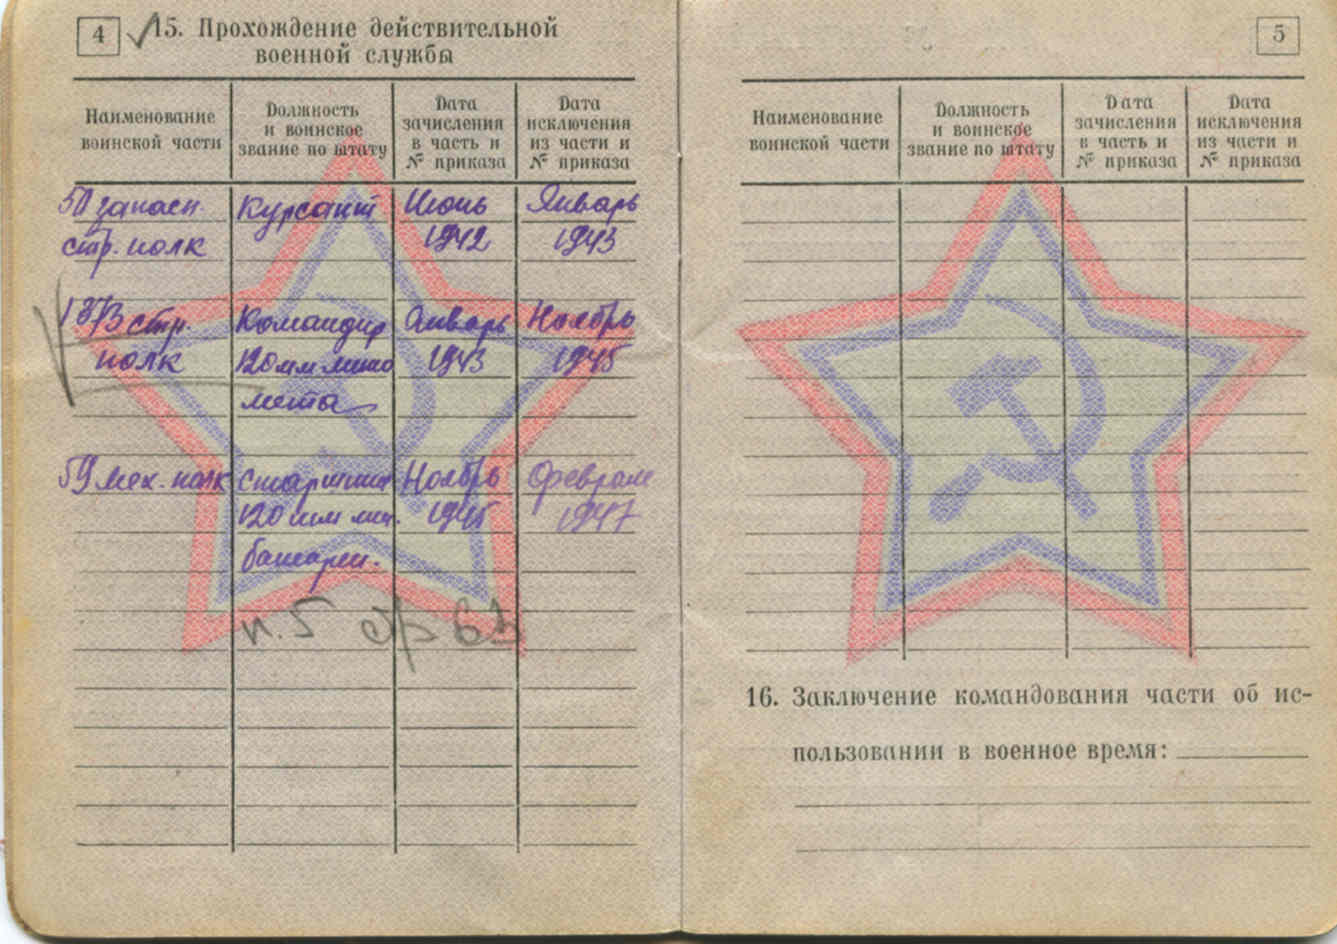 4
15. Прохождение действительной
военной службы
Наименование
воинской части
Должность
и воинское
звание по штату
Дата
зачисления
в часть и
№ приказа
Дата
исключения
из части и
№ приказа
50 запасн.
стр. полк
Курсант
Июнь
1942
Январь
1943
стр.
полк
Командир
120 мм мино
мета
Январь
1943
Ноябрь
1945
59 мех. полк
120 мм мин.
батареи.
Ноябрь
1945
Февраль
1947
п. 5
5
Наименование
воинской части
Должность
и воинское
звание по штату
Дата
зачисления
в часть и
№ приказа
Дата
исключения
из части и
№ приказа
16. Заключение командования части об ис-
пользовании в военное время: